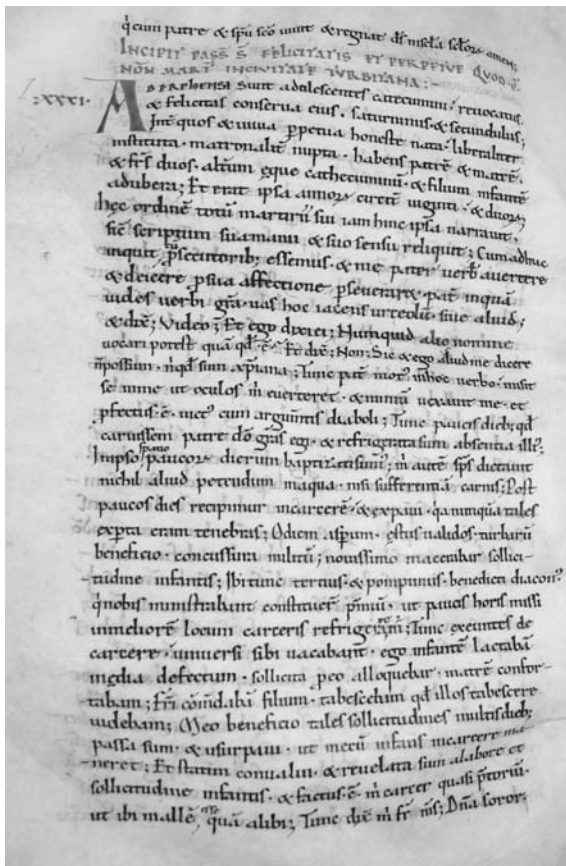 q̇ cum patre & spū scō uiuit & regnat dſ inſcla sclor̄ amen;
INCIPIT PASS̄ S̄ FELICITATIS ET PERPETVE QVOD·Ē·
NON̄ MART̄ INCIVITATE TVRBITANA:
·XXXI· ADPREHENSA sunt adolescentes catecumini· reuocatus
& felicitas conserua eius· saturninus· & secundulus;
Int̄ quos & uiuia ꝑpetua honeste nata· liberaliter
instituta· matronalit̄ nupta· habens patrē & matrē·
& fr̄s duos· altum̄ ęque cathecuminū· & filium infantē
adubera; Et erat ipsa annor̄ circit̄ uiginti· & duor̄;
hęc ordinē totū martirii sui iam hinc ipsa narrauit·
sic̄ scriptum suamanu & suo sensu reliquit; Cum adhuc
inquit cū ꝑsecutorib; essemus· & me pater uerb̄ auertere
& deicere ꝓsua affectione ꝑseueraret· pat̄ inquā
uides uerbi gr̄a· uas hoc iacens urceolū· siue aliud;
& dix̄; Video; Et ego dixi ei; Numquid alio nomine
uocari potest quā qd̄·ē· Et dix̄; Non; Sic & ego aliud me dicere
n̄ possum· n̄ qd̄ sum xp̄iana; Tunc pat̄ mot' inhoc uerbo· misit
se in me ut oculos m̄ euerteret· & nimiū uexauit me· et
ꝓfectus·ē· uict' cum argumtis diaboli; Tunc paucis dieb; qd̄
caruissem patre dō grās egi· & refrigerata sum absentia illi';
Inipso spatio paucor̄ dierum baptizati sum'; m̄ autē sp̄s dictauit
nichil aliud petendum inaqua· nisi sufferentiā carnis; Post
paucos dies recipimur incarcerē· & expaui· qa nunquā tales
experta eram tenebras; O diem aspum̄· ęstus ualidos· turbarū
beneficio· concussura militū; nouissimo macerabar sollici-
-tudine infantis; Ibi tunc tertius· & pomponius· benedicti diacon'
q̇ nobis ministrabant constituer̄ p̄miū· ut paucis horis missi
inmeliorē locum carceris refrigerarem'; Tunc exeuntes de
carcere· uniuersi sibi uacabant· ego infantē lactabā
inędia defectum· sollicita ꝑ eo alloquebar· matrē confor-
-tabam; fr̄i cōmdabā filium· tabescebam qd̄ illos tabescere
uidebam; Meo beneficio tales sollicitudines multis dieb;
passa sum· & usurpaui· ut mecū infans incarcere ma-
neret; Et statim conualui· & releuata sum alabore et
sollicitudine infantis· & factus·ē· m̄ carcer quasi p̄toriū·
ut ibi mallē esse quā alibi; Tunc dix̄ m̄ fr̄ m̄s; Dn̄a soror·